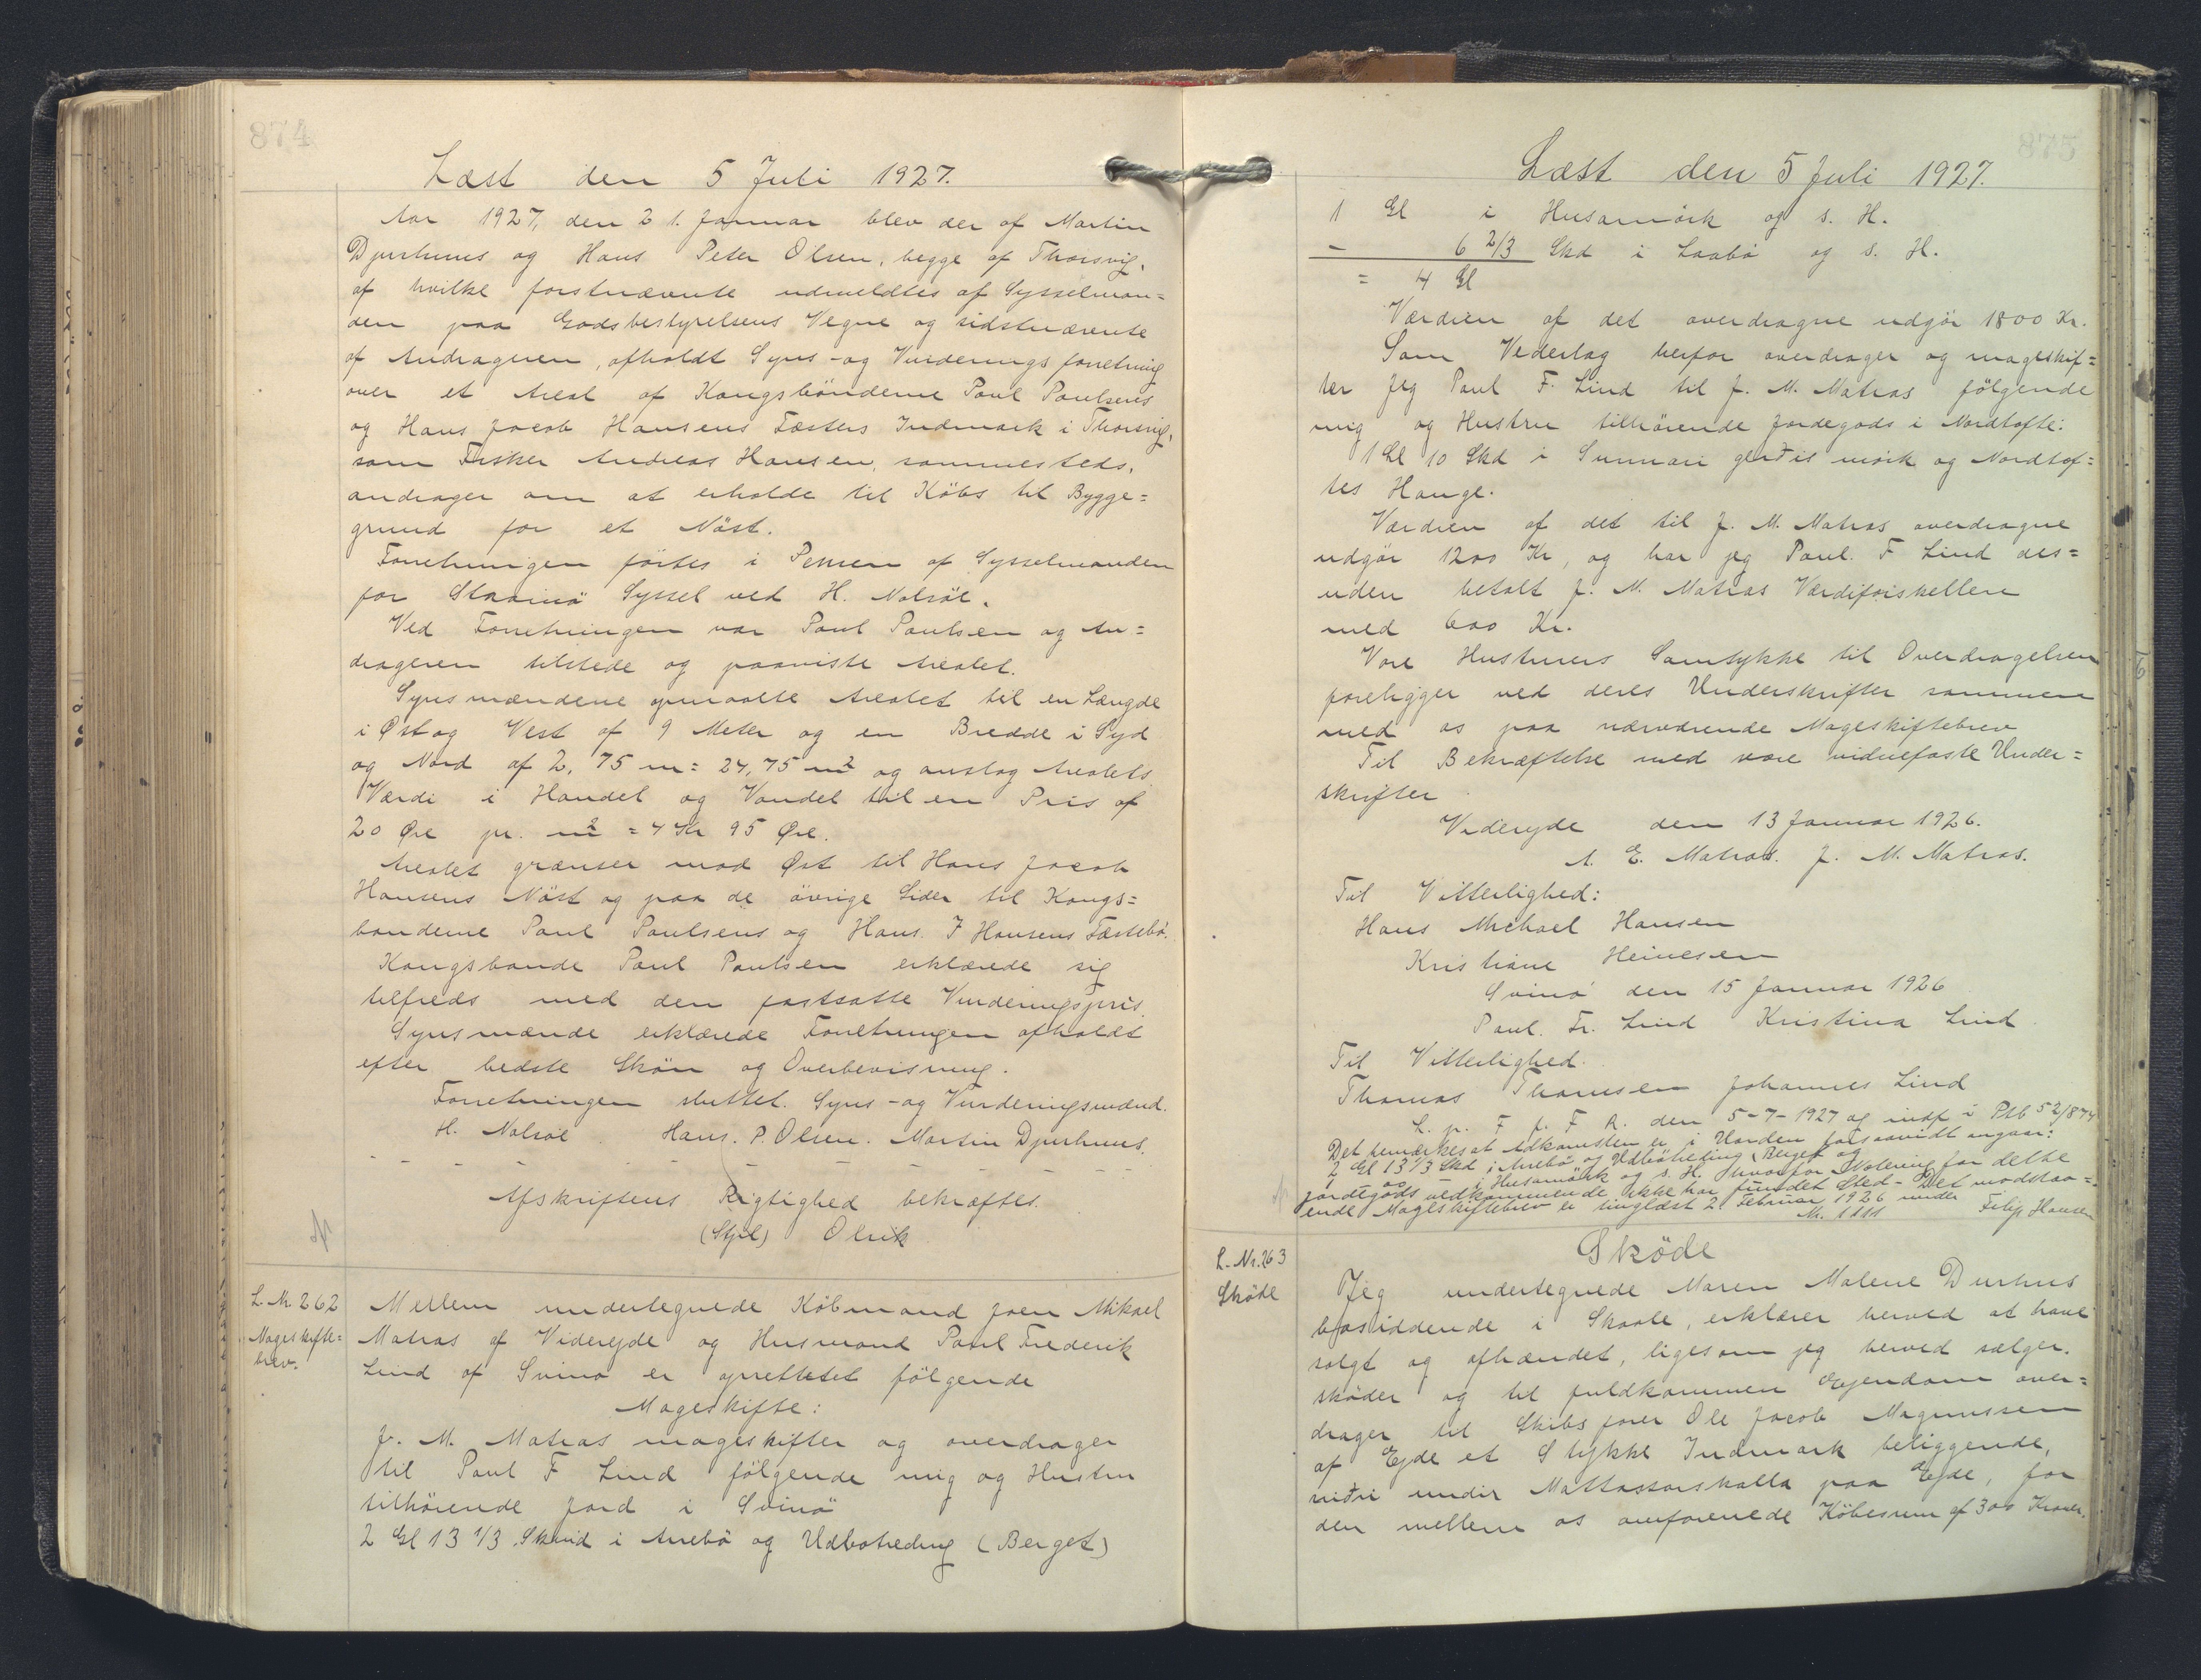 874
Læst den 5 Juli 1927.
Aar 1927, den 21. Januar blev der af Martin
Djurhuus og Hans Peter Olsen, begge af Thorsvig,
af hvilke førstnævnte udmeldtes af Sysselman=
den paa Godsbestyrelsens Vegne og sidstnævnte
af Andrageren, afholdt Syns- og Vurderingsforretning
over et Areal af Kongsbønderne Poul Poulsens
og Hans Jacob Hansens Fæsters Indmark i Thorsvig,
som Fisker Andreas Hansen, sammesteds,
andrager om at erholde til Købs til Bygge=
grund for et Nöst.
Forretningen førtes i Pennen af Sysselmanden
for Strømø Syssel ved H. Nolsøe.
Ved Forretningen var Poul Poulsen og An=
drageren tilstede og paaviste Arealet.
Synsmændene opmaalte Arealet til en Længde
i Øst og Vest af 9 Meter og en Bredde i Syd
og Nord af 2,75 m = 24,75 m² og anslog Arealets
Værdi i Handel og Vandel til en Pris af
20 Øre pr. m² = 4 Kr 95 Øre.
Arealet grænser mod Øst til Hans Jacob
Hansens Nöst og paa de övrige Sider til Kongs=
bønderne Poul Poulsens og Hans J Hansens Fæstebö.
Kongsbonde Poul Poulsen erklærede sig
tilfreds med den fastsatte Vurderingspris.
Synsmænde erklærede Forretningen afholdt
efter bedste Skön og Overbevisning.
Forretningen sluttet. Syns- og Vurderingsmænd.
H. Nolsöe. Hans. P. Olsen. Martin Djurhuus.
Afskriftens Rigtighed bekræftes.
(Stpl) Olrik
L. Nr. 262
Mageskifte=
brev.
Mellem undertegnede Købmand Joen Mikael
Matras af Viderejde og Husmand Poul Frederik
Lind af Svinø er oprettetet fölgende
Mageskifte:
J. M. Matras mageskifter og overdrager
til Poul F Lind fölgende mig og Hustru
tilhörende Jord i Svinö
2 Gl 13 1/3 Skind i Arebö og Udbøtreding (Berget)
875
Læst den 5 Juli 1927.
1 Gl i Husamörk og s. H.
- 6 2/3 Skd i Laabö og s. H.
= 4 Gl
Værdien af det overdragne udgör 1800 Kr.
Som Vederlag herfor overdrager og mageskif=
ter jeg Poul F. Lind til J. M. Matras fölgende
mig og Hustru tilhörende Jordegods i Nordtofte:
1 Gl 10 Skd i Sunnari gerðis mörk og Nordtof=
tes Hauge.
Værdien af det til J. M. Matras overdragne
udgör 1200 Kr, og har jeg Poul. F Lind des=
uden betalt J. M. Matras Værdiforskellen
med 600 Kr.
Vore Hustruers Samtykke til Overdragelsen
foreligger ved deres Underskrifter sammen
med os paa nærværende Mageskiftebrev
Til Bekræftelse med vore vidnefaste Under=
skrifter
Viderejde den 13 Januar 1926.
A. E. Matras. J. M. Matras.
Til Vitterlighed:
Hans Michael Hansen
Kristiane Heinesen
Svinö den 15 Januar 1926
Poul. Fr. Lind Kristina Lind
Til Vitterlighed.
Thomas Thomsen Johannes Lind
L. p. F f. F R. den 5-7-1927 og indf i Ptb 52/874
Det bemærkes at Adkomsten er i Orden forsaavidt angaar:
2 Gl 13 1/3 Skd i Arebö og Udbøtreding (Berget og
1 i Husamörk og s. H. hvorfor Notering for dette
Jordegods vedkommende ikke har fundet Sted - Det modstaa=
ende Mageskiftebrev er tinglæst 2 Februar 1926 under
Filip Hansen
L. Nr. 263
Sköde
Sköde
Jeg undertegnede Maren Malene Durhus
bosiddende i Skaale, erklærer herved at have
solgt og afhændet, ligesom jeg herved sælger.
skøder og til fuldkommen Ejendom over=
drager til Skibsfører Ole Jacob Magnussen
af Ejde et Stykke Indmark beliggende,
niðri undir Mattassarskalla paa Ejde, for
den mellem os omforenede Købesum af 300 Kroner.